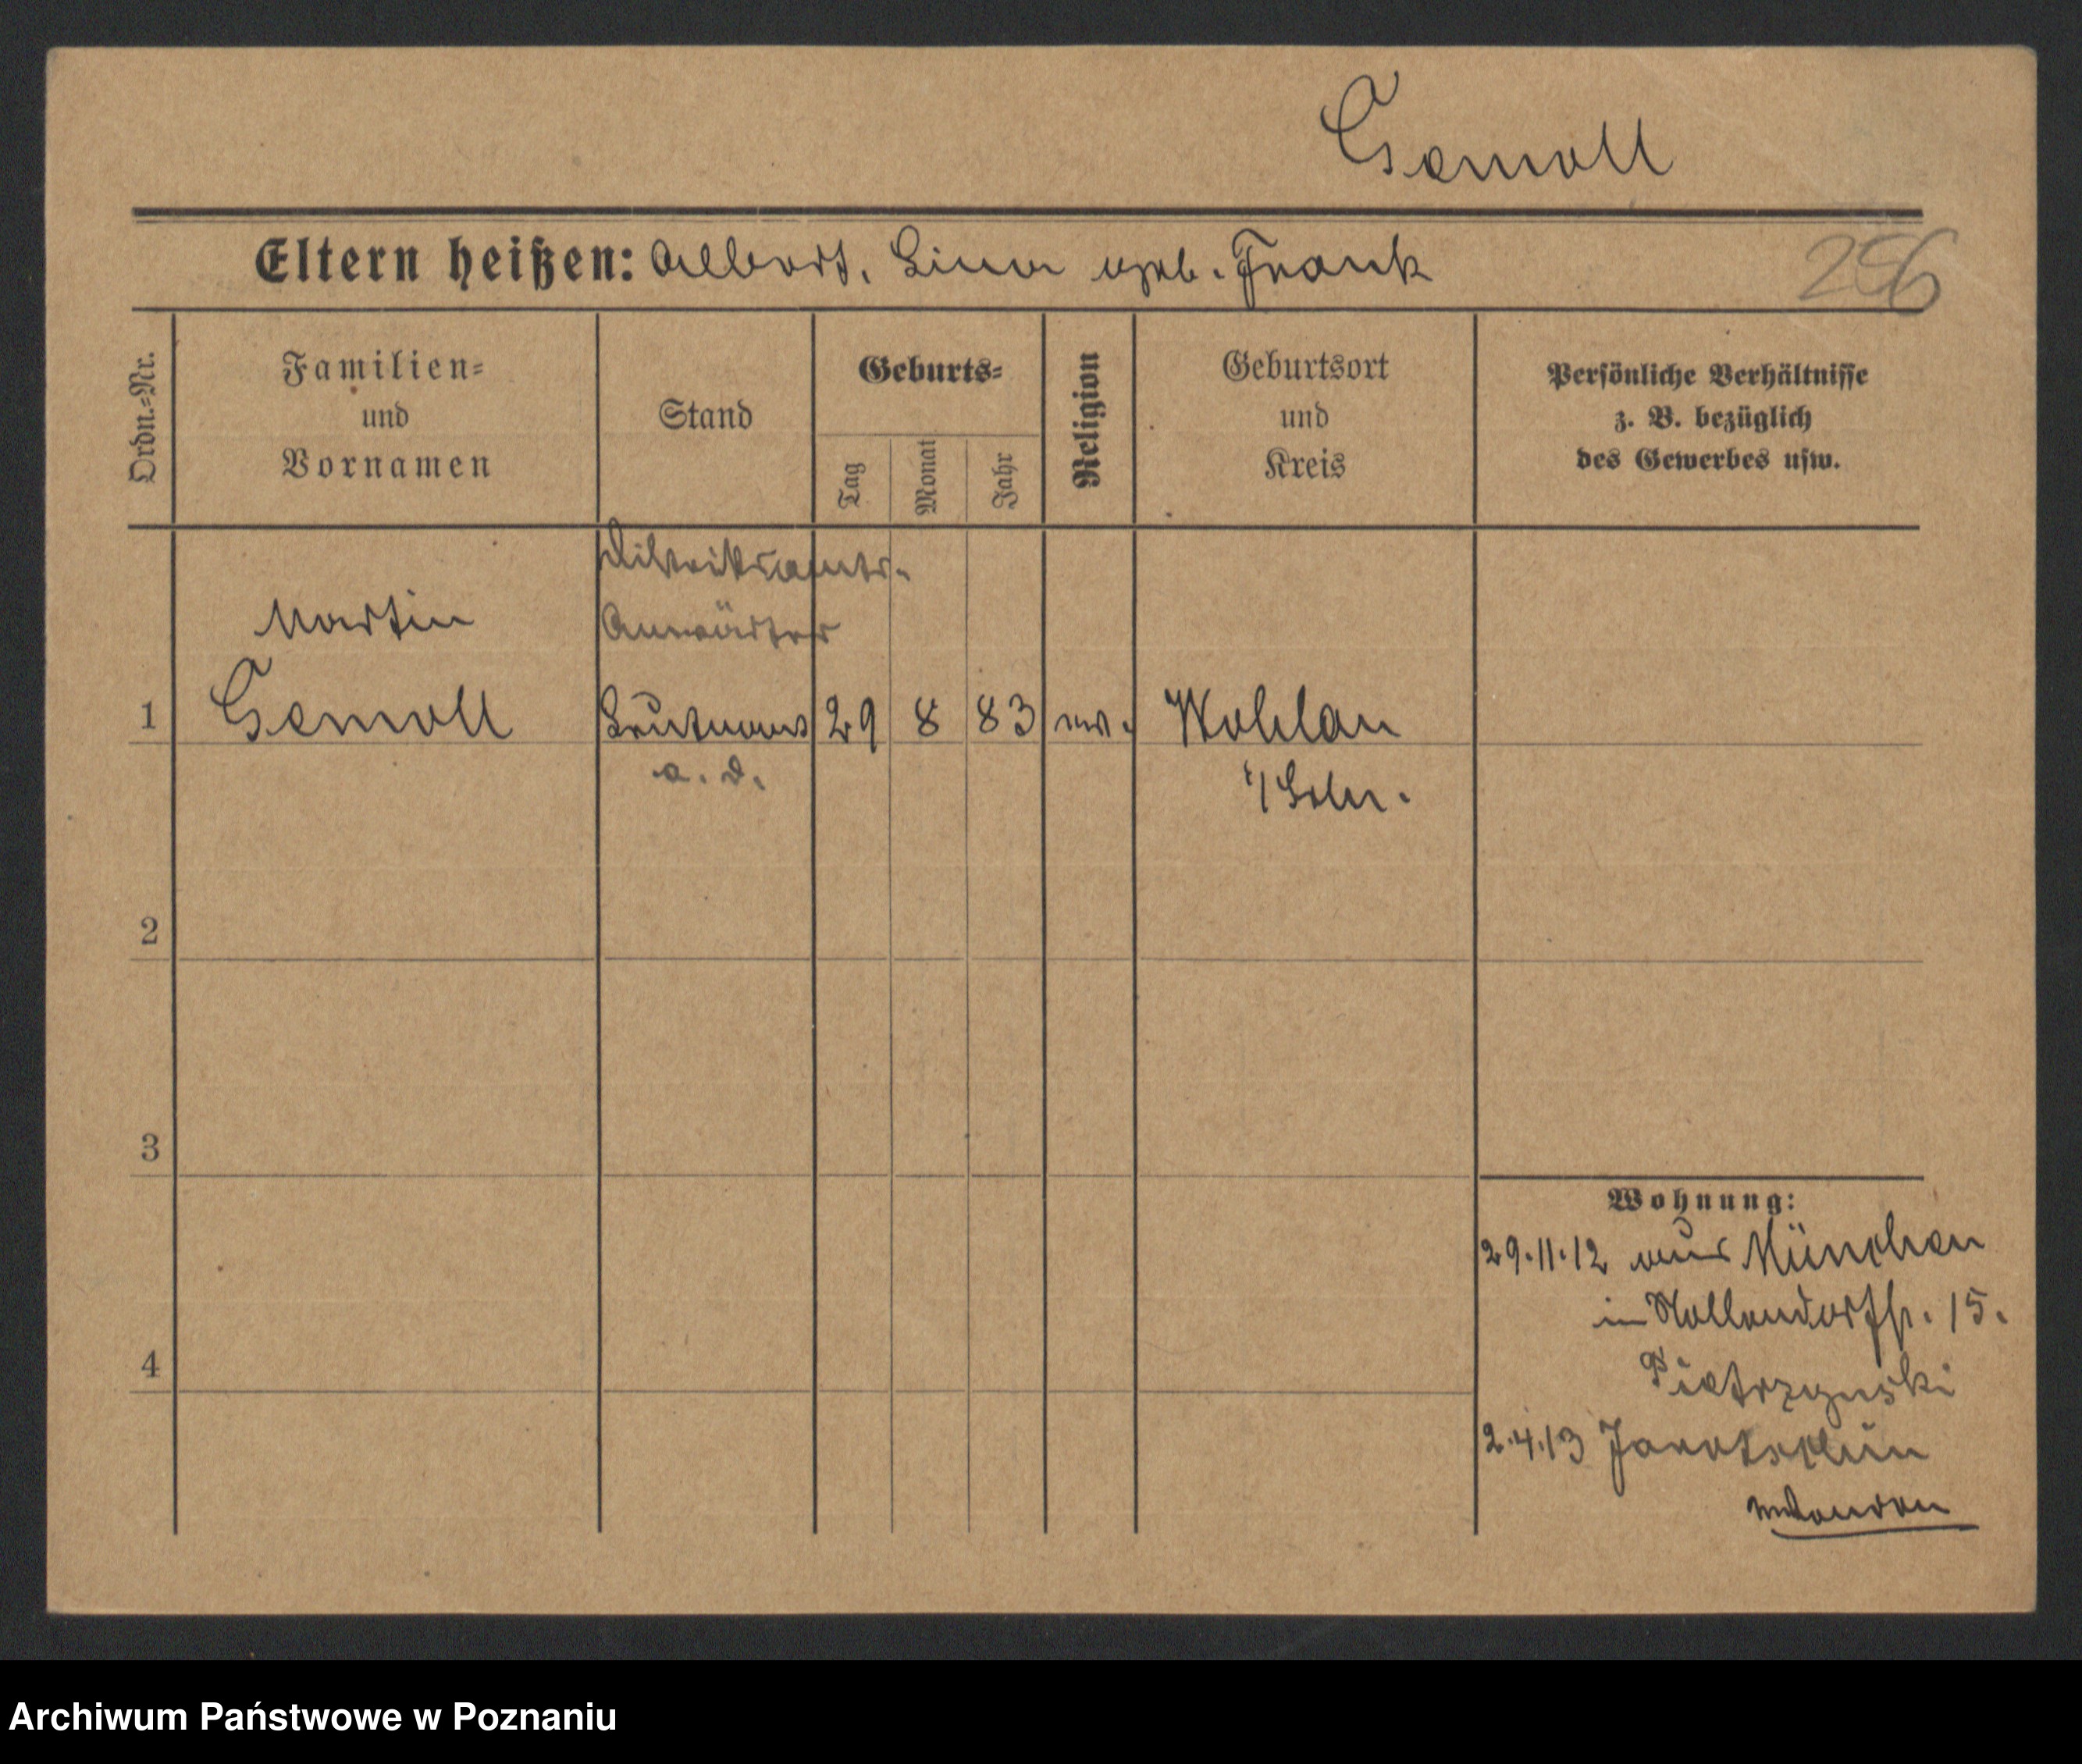 Gemoll
Eltern heißen: Albert, Lina geb. Frank
256
Ordn.=Nr.
Familien=
und
Vornamen
Stand
Geburts=
Tag
Monat
Jahr
Religion
Geburtsort
und
Kreis
Persönliche Verhältnisse
z. B. bezüglich
des Gewerbes usw.
Distriktsamts-
Martin
Anwärter
1 Gemoll Leutnant 29 8 83 ev. Wohlau
a. D.
2
3
4
Wohnung:
29.11.12 aus München
in Nollendorfstr. 15.
Pietrzynski
2.4.13 Jarotschin
Archiwum Państwowe w Poznaniu